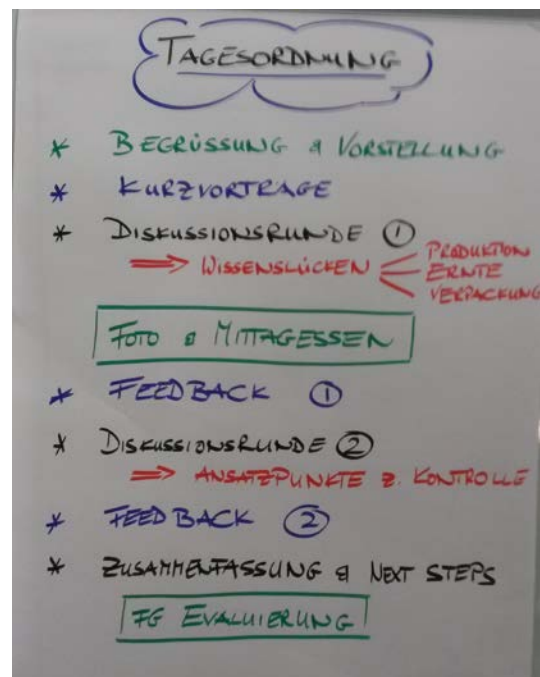 TAGESORDNUNG
* BEGRÜSSUNG & VORSTELLUNG
* KURZVORTRÄGE
* DISKUSSIONSRUNDE ①
⇒ WISSENSLÜCKEN
PRODUKTION
ERNTE
VERPACKUNG
FOTO & MITTAGESSEN
* FEEDBACK ①
* DISKUSSIONSRUNDE ②
⇒ ANSATZPUNKTE Z. KONTROLLE
* FEEDBACK ②
* ZUSAMMENFASSUNG & NEXT STEPS
FG EVALUIERUNG